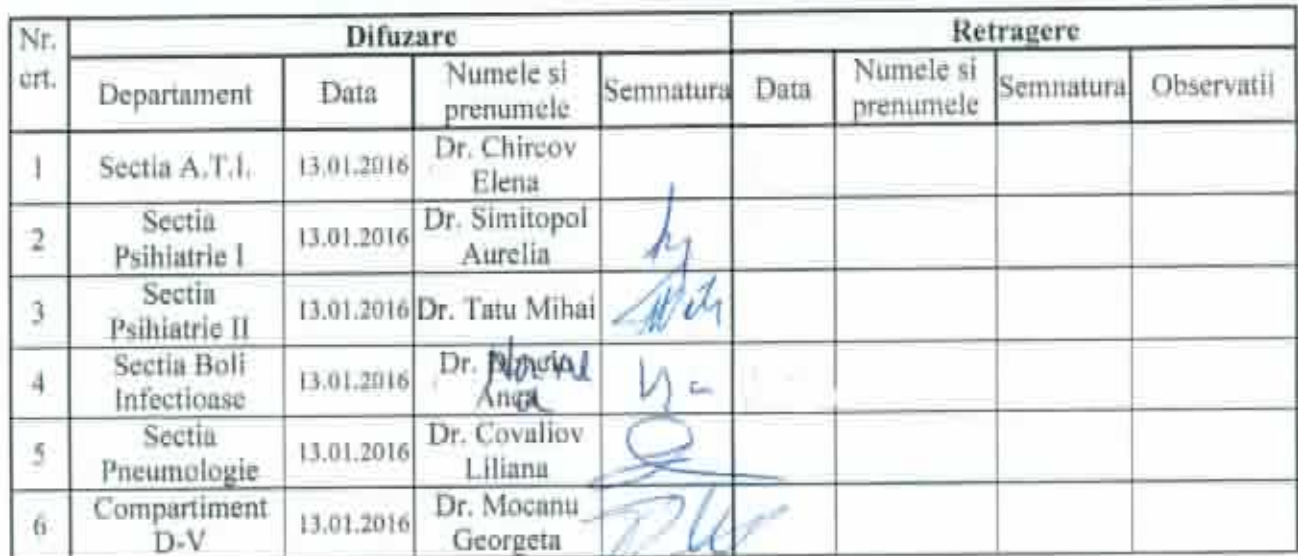 Nr. crt. Difuzare Retragere
Departament Data Numele si prenumele Semnatura Data Numele si prenumele Semnatura Observatii
1 Sectia A.T.I. 13.01.2016 Dr. Chircov Elena
2 Sectia Psihiatrie I 13.01.2016 Dr. Simitopol Aurelia
3 Sectia Psihiatrie II 13.01.2016 Dr. Tatu Mihai
4 Sectia Boli Infectioase 13.01.2016 Dr.
5 Sectia Pneumologie 13.01.2016 Dr. Covaliov Liliana
6 Compartiment D-V 13.01.2016 Dr. Mocanu Georgeta